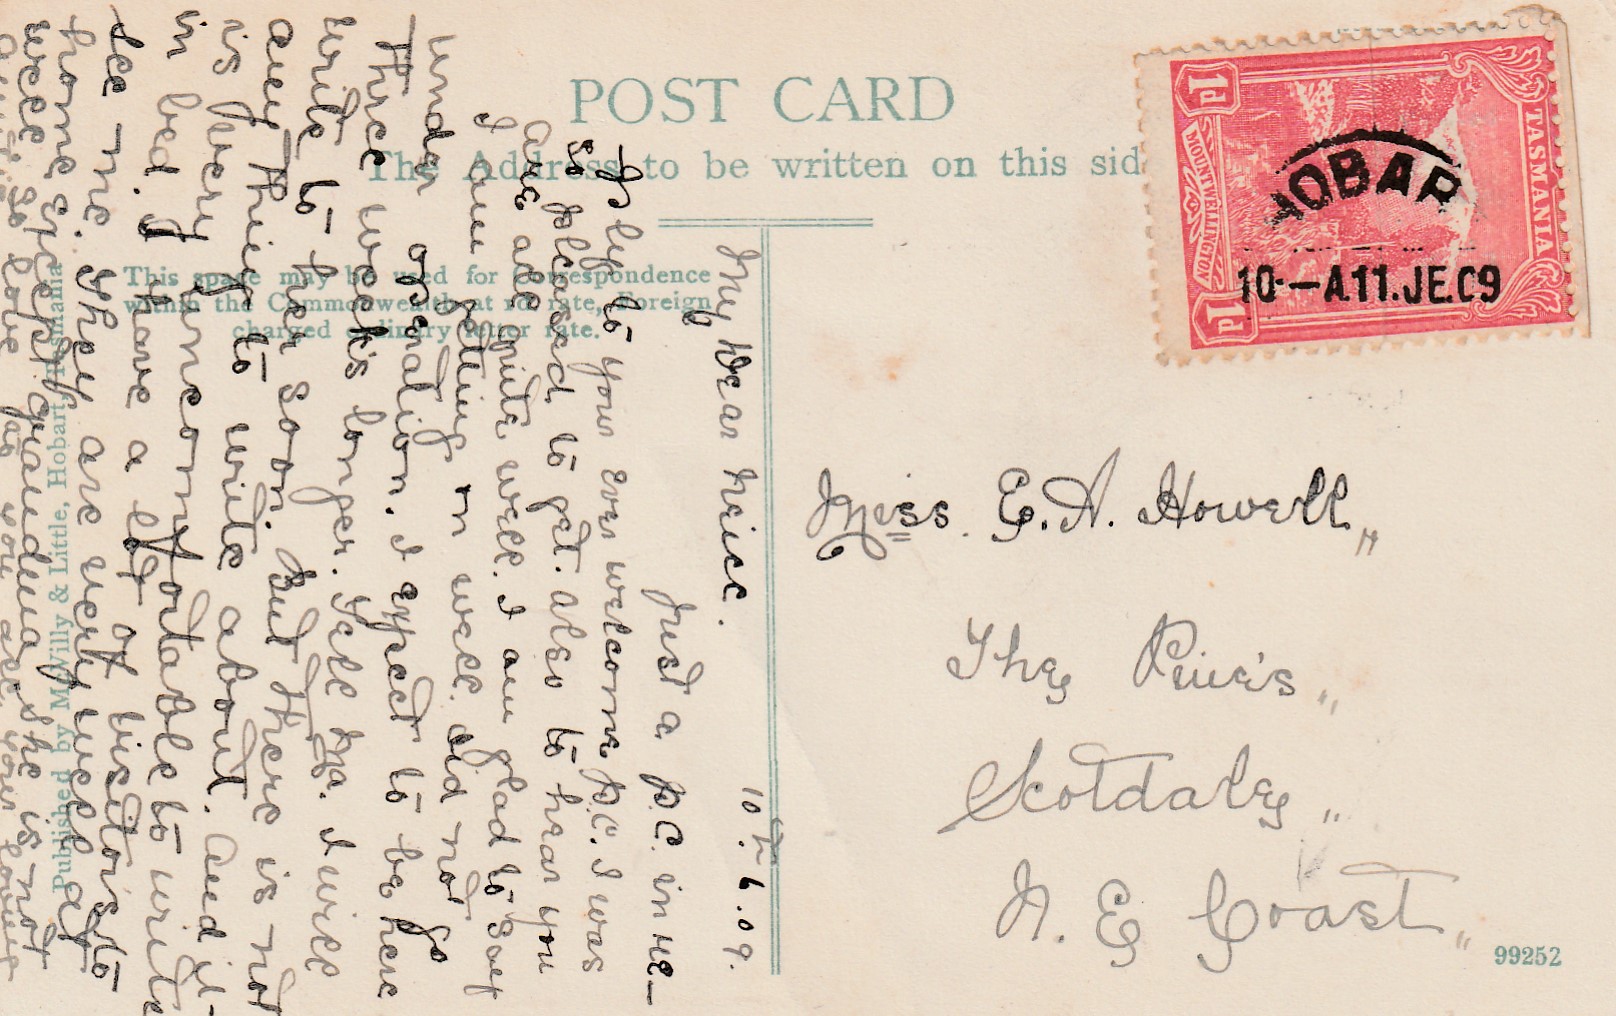 POST CARD
The Address to be written on this sid
This space may be used for Correspondence
within the Commonwealth at rate, Foreign
charged ordinary letter rate.
Published by McWilly & Little, Hobart, Tasmania
TASMANIA
MOUNT WELLINGTON
1d
1d
HOBAR
10-A.11.JE.09
Miss. E. A. Howell
The Pine's
Scotdale
N. E Coast
99252
10th 6. 09.
My Dear Neice.
Just a P.C. in re-
ply to your ever welcome P.C. I was
so pleased to get. also to hear you
are all quite well. I am glad to say
I am getting on well. did not go
under operation. I expect to be here
Three week's longer. Tell I will
write to her soon. But there is not
any thing to write about. and it
is very uncomfortable to write
in bed. I have a lot of visitor's to
see me. They are very well at
home except grandma she is not
well so love you all your loving